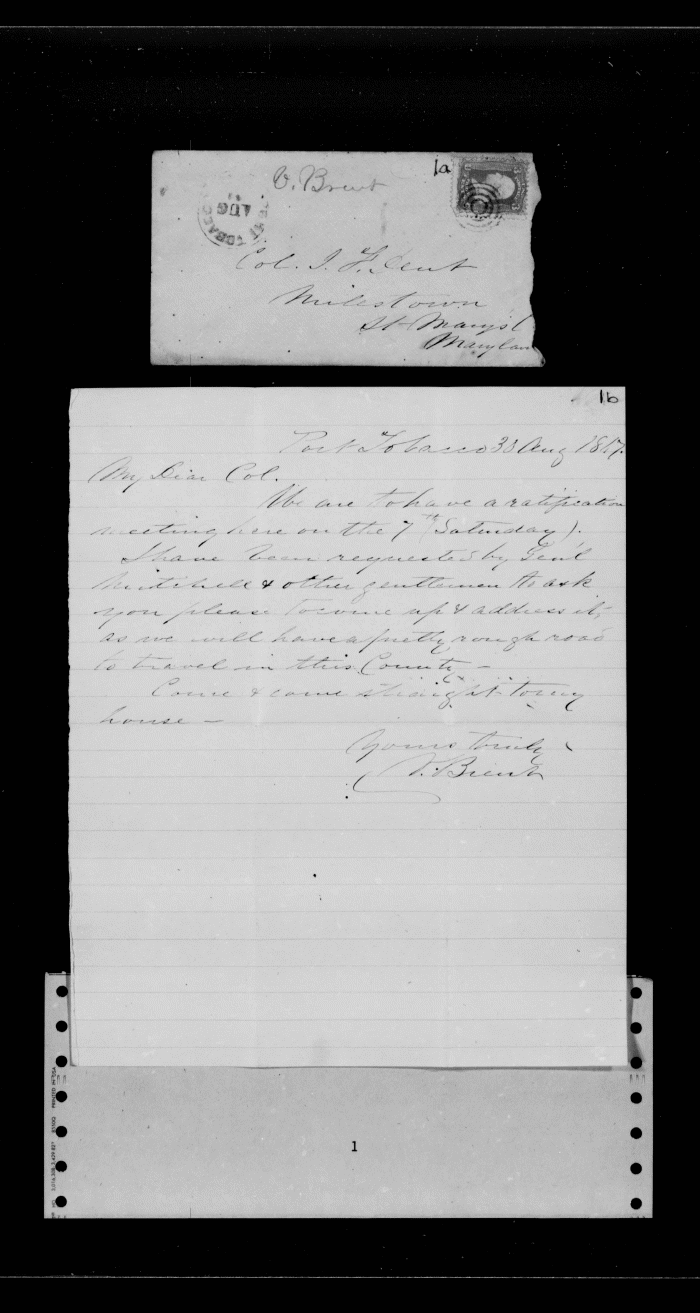 1a
V. Brent
PORT TOBACCO
AUG
Col. J. F. Dent
Milestown
St. Mary's
Marylan
1b
Port Tobacco 30 Aug 1867.
My Dear Col.
We are to have a ratification
meeting here on the 7th (Saturday).
I have been requested by Genl
Mitchell & other gentlemen to ask
you please to come up & address it,
as we will have a pretty rough road
to travel in this County —
Come & come straight to my
house —
Yours truly
V. Brent
1
PRINTED IN USA